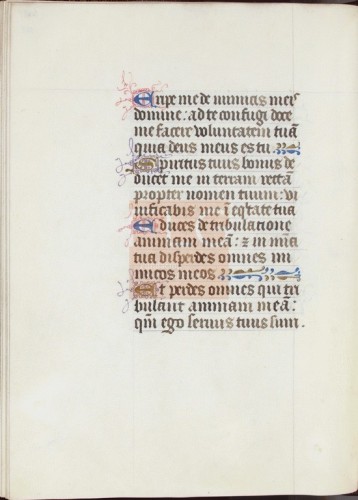 Eripe me de inimicis meis
domine: ad te confugi doce
me facere voluntatem tuā
quia deus meus es tu.
Spiritus tuus bonus de
ducet me in terram rectā
propter nomen tuum: vi
vificabis me ī eq̄tate tua
Educes de tribulatione
animam meā: ⁊ in mīa
tua disperdes omnes ini
micos meos.
Et perdes omnes qui tri
bulant animam meā:
qm̄ ego servus tuus sum.